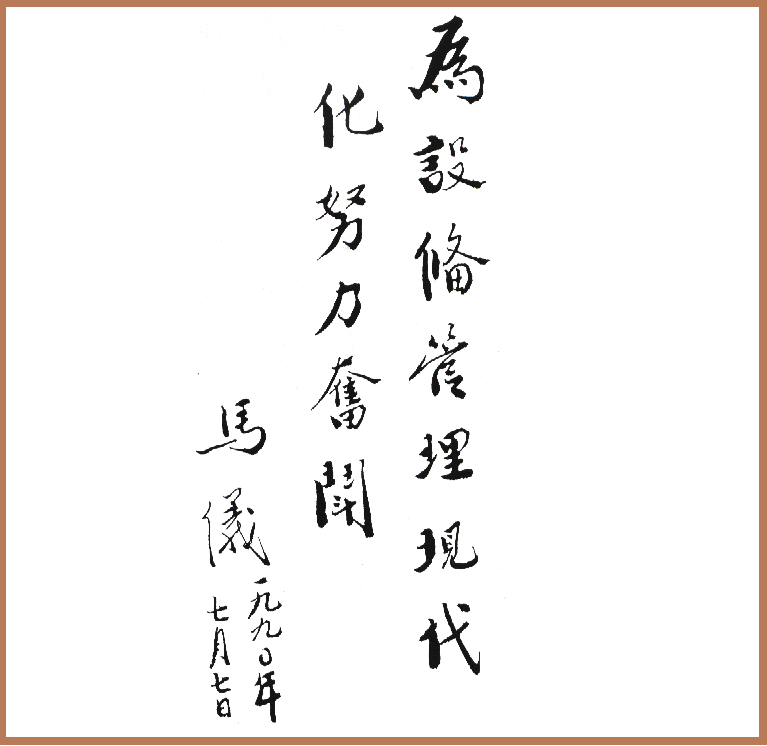 為設備管理現代
化努力奮鬪
馬儀
一九九〇年
七月七日